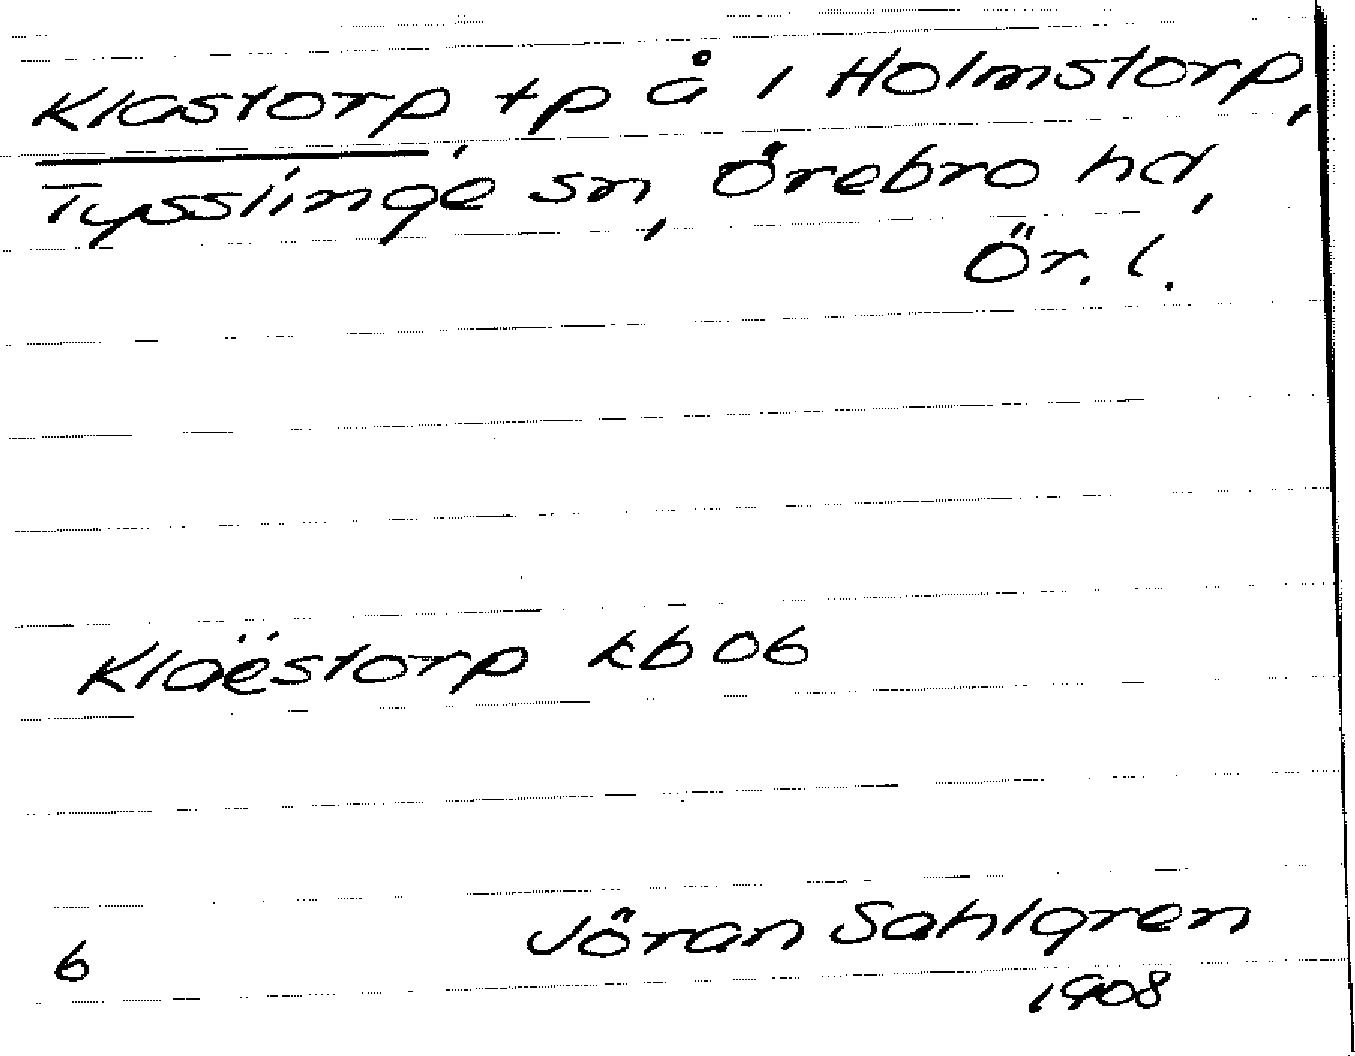 Klastorp, tp å 1 Holmstorp,
Tysslinge sn, Örebro hd,
Ör. l.
Klaëstorp kb 06
Jöran Sahlgren
6
1908